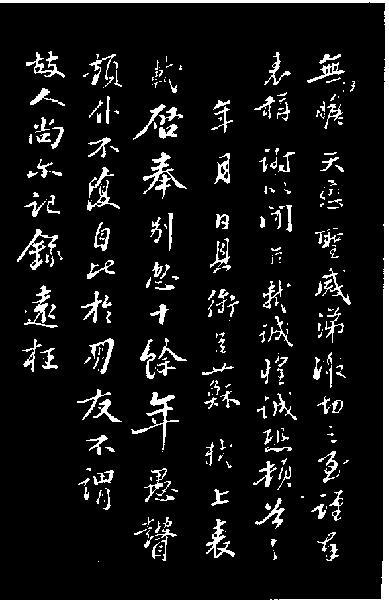 無瞻天戀聖感涕激切之至謹奉
表稱謝以聞臣軾誠惶誠恐頓首
年月日具銜臣蘇軾上表
軾啓奉別忽十餘年愚瞽
頓仆不復自比於朋友不謂
故人尚尔記錄遠枉